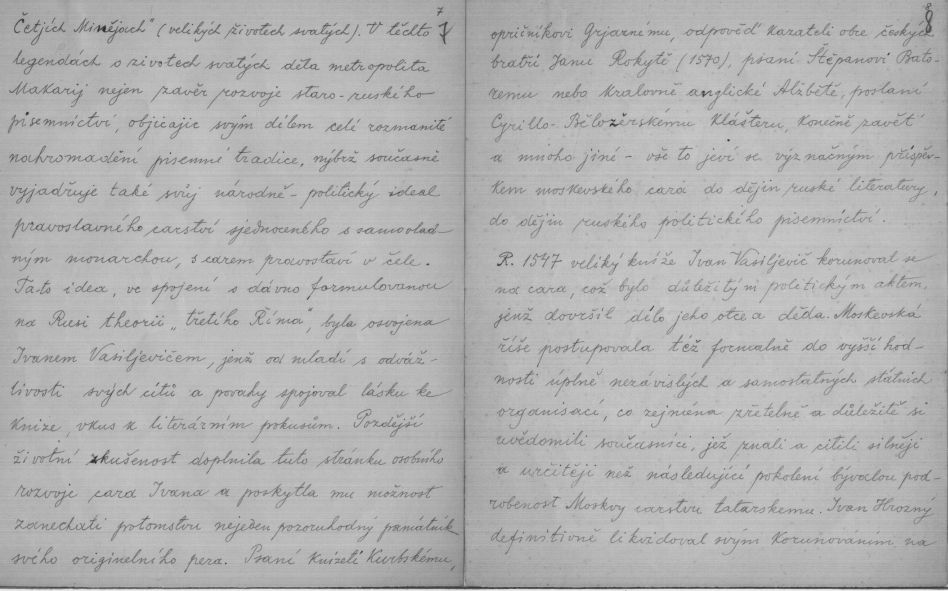 7
Četjích Minějách" (velikých životech svatých). V těchto 7
legendách o životech svatých děta metropolita
Makarij nejen závěr rozvoje staro-ruského
písemnictví, objicajíc svým dílem celé rozmanité
nahromadění písemné tradice, nýbrž současně
vyjadřuje také svůj národně-politický ideal
pravoslavného carství sjednoceného s samovlad-
ným monarchou, s carem pravostaví v čele.
Ta-to idea, ve spojení s dávno formulovanou
na Rusi theorii „třetího Říma", byla osvojena
Ivanem Vasiljevičem, jenž od mladí s odváž-
livostí svých citů a povahy spojoval lásku ke
knize, vkus k literárním pokusům. Pozdější
životní zkušenost doplnila tuto stránku osobního
rozvoje cara Ivana a poskytla mu možnost
zanechati potomstvu nejeden pozoruhodný památník
svého originelního pera. Psaní knížeti Kurbskému,
8
opričníkovi Grjaznému, odpověď kazateli obce českých
bratří Janu Rokytě (1570), psaní Štěpanovi Bato-
remu nebo královně anglické Alžbětě, poslaní
Cyrillo-Bělozěrskému Klášteru, konečně závěť
a mnoho jiné – vše to jeví se význačným příspěv-
kem moskevského cara do dějin ruské literatury,
do dějin ruského politického písemnictví.
R. 1547 veliký kníže Ivan Vasiljevič korunoval se
na cara, což bylo důležitým politickým aktem,
jenž dovršil dílo jeho otce a děda. Moskevská
říše postupovala též formalně do vyšší hod-
nosti úplně nezávislých a samostatných státních
organisací, co zejména zřetelně a důležitě si
uvědomili současníci, jež znali a cítili silněji
a určitěji než následující pokolení bývalou pod-
robenost Moskvy carstvu tatarskemu. Ivan Hrozný
definitivně likvidoval svým korunovaním na